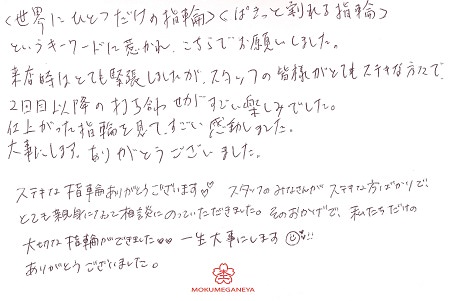 〈世界にひとつだけの指輪〉〈ぱきっと割れる指輪〉
というキーワードに惹かれ、こちらでお願いしました。
来店時はとても緊張しましたが、スタッフの皆様がとてもステキな方々で、
2回目以降の打ち合わせがすごい楽しみでした。
仕上がった指輪を見て、すごい感動しました。
大事にします。ありがとうございました。
ステキな指輪ありがとうございます♡ スタッフのみなさんがステキな方ばかりで、
とても親身になって相談にのっていただきました。そのおかげで、私たちだけの
大切な指輪ができました♡♡ 一生大事にします☺!!
ありがとうございました。
MOKUMEGANEYA